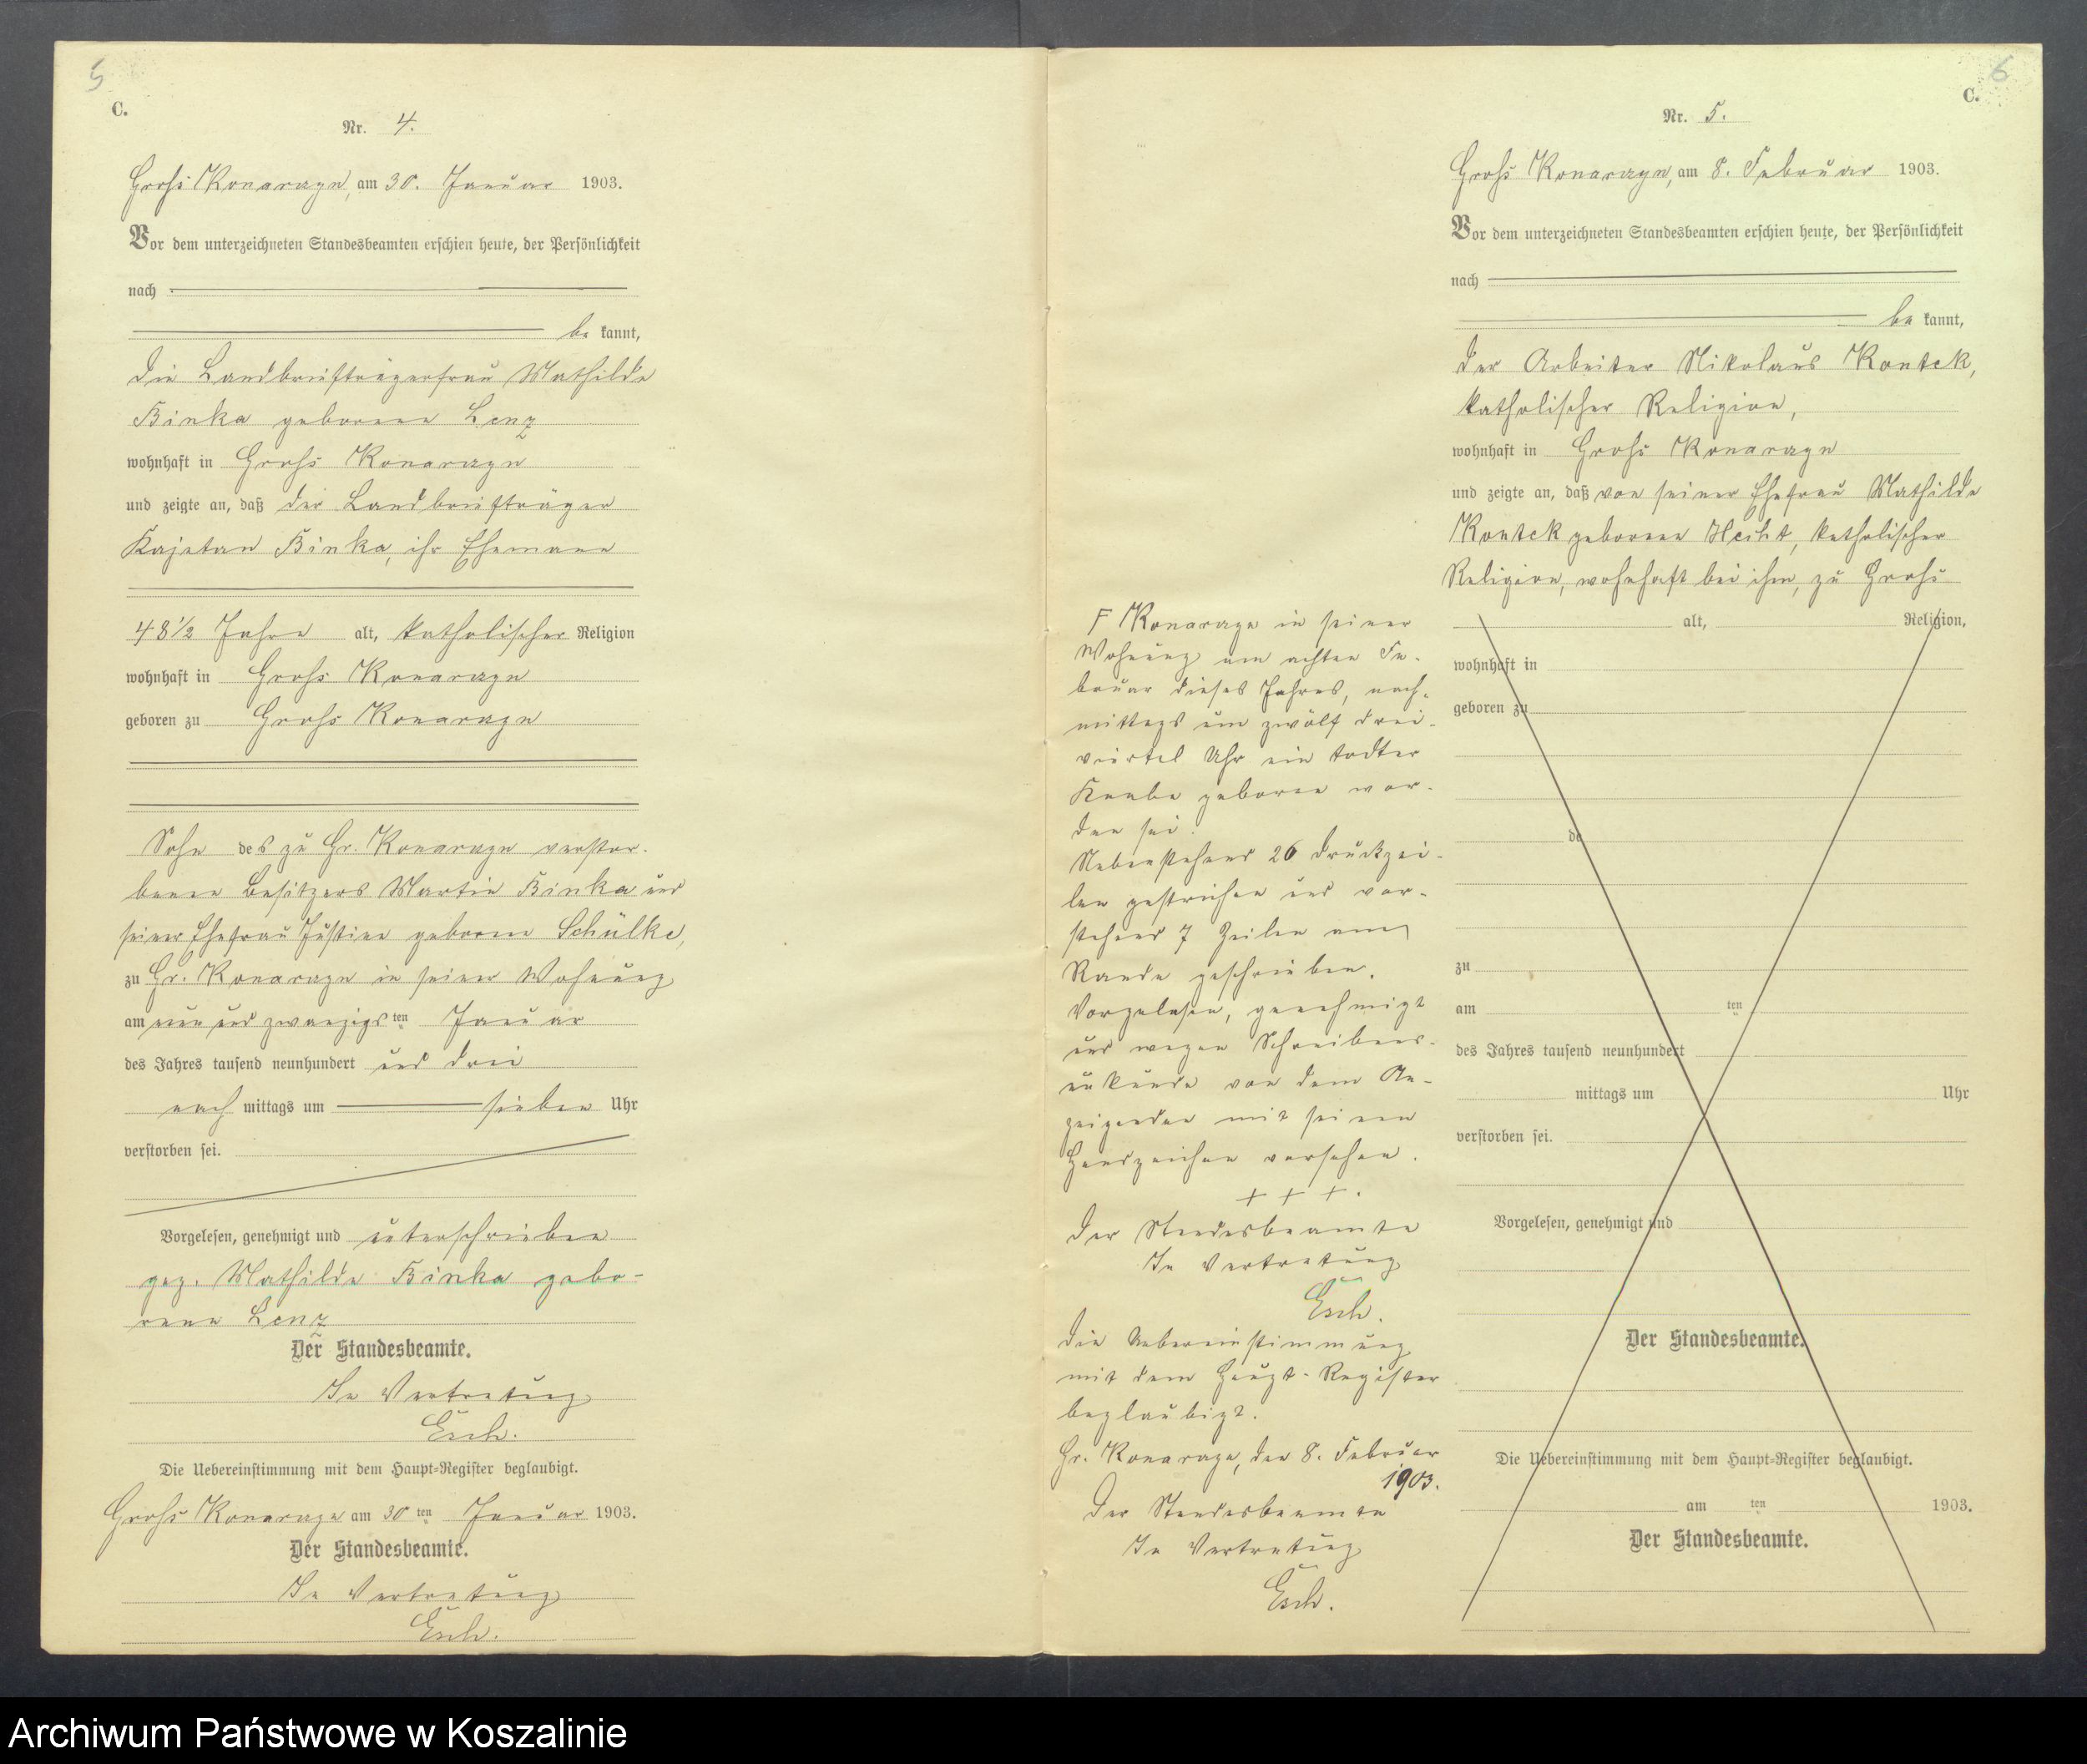 5
C.
Nr. 4.
Groß Konarzyn, am 30. Januar 1903.
Vor dem unterzeichneten Standesbeamten erschien heute, der Persönlichkeit
nach
be kannt,
die Landbriefträgerfrau Mathilde
Binka geborene Lenz
wohnhaft in Groß Konarzyn
und zeigte an, daß der Landbriefträger
Kajetan Binka, ihr Ehemann
48 1/2 Jahre alt, katholischer Religion
wohnhaft in Groß Konarzyn
geboren zu Groß Konarzyn
Sohn des zu Gr. Konarzyn verstor-
benen Besitzers Martin Binka und
seiner Ehefrau Justine geborene Schülke,
zu Gr. Konarzyn in seiner Wohnung
am neun und zwanzigs ten Januar
des Jahres tausend neunhundert und drei
nach mittags um sieben Uhr
verstorben sei.
Vorgelesen, genehmigt und unterschrieben
gez. Mathilde Binka gebo-
rene Lenz
Der Standesbeamte.
In Vertretung
Esch.
Die Uebereinstimmung mit dem Haupt-Register beglaubigt.
Groß Konarzyn am 30 ten Januar 1903.
Der Standesbeamte.
In Vertretung
Esch.
6
C.
Nr. 5.
Groß Konarzyn, am 8. Februar 1903.
Vor dem unterzeichneten Standesbeamten erschien heute, der Persönlichkeit
nach
be kannt,
der Arbeiter Nikolaus Kontek,
katholischer Religion,
wohnhaft in Groß Konarzyn
und zeigte an, daß von seiner Ehefrau Mathilde
Kontek geborene Hecht, katholischer
Religion, wohnhaft bei ihm, zu Groß
F Konarzyn in seiner
Wohnung am achten Fe-
bruar dieses Jahres, nach-
mittags um zwölf drei-
viertel Uhr ein todter
Knabe geboren wor-
den sei.
Nebenstehend 26 Druckzei-
len gestrichen und vor-
stehend 7 Zeilen am
Rande geschrieben.
Vorgelesen, genehmigt
und wegen Schreibens-
unkunde von dem An-
zeigenden mit seinem
Handzeichen versehen.
+ + +.
Der Standesbeamte
In Vertretung
Esch.
Die Uebereinstimmung
mit dem Haupt-Register
beglaubigt.
Gr. Konarzyn, den 8. Februar
1903.
Der Standesbeamte
In Vertretung
Esch.
alt, Religion,
wohnhaft in
geboren zu
de
zu
am ten
des Jahres tausend neunhundert
mittags um Uhr
verstorben sei.
Vorgelesen, genehmigt und
Der Standesbeamte.
Die Uebereinstimmung mit dem Haupt-Register beglaubigt.
am ten 1903.
Der Standesbeamte.
Archiwum Państwowe w Koszalinie